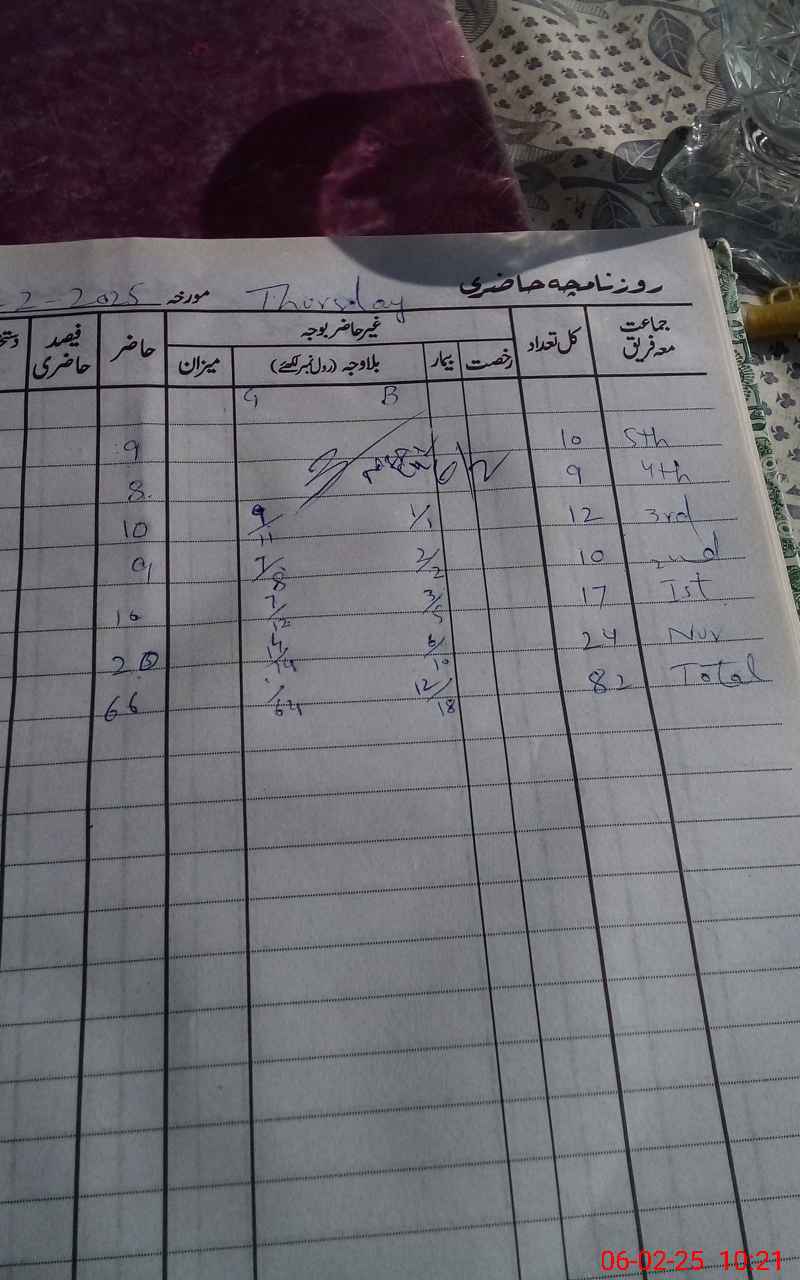 روزنامچہ حاضری Thursday مورخہ -2-2025
جماعت معہ فریق کل تعداد غیر حاضر بوجہ حاضر فیصد حاضری
رخصت بیمار بلاوجہ (رول نمبر لکھئے) میزان
B G
5th 10 9
4th 9 8
3rd 12 1/1 9/11 10
2nd 10 2/2 7/8 9
Ist 17 3/5 7/12 10
Nur 24 6/10 14/14 20
Total 82 12/18 /64 66
06-02-25 10:21